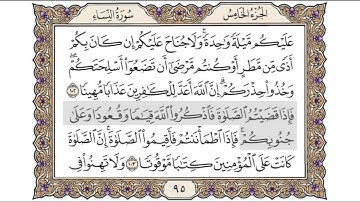 الجزء الخامس
سورة النساء
عَلَيْكُم مَّيْلَةً وَٰحِدَةً ۚ وَلَا جُنَاحَ عَلَيْكُمْ إِن كَانَ بِكُمْ
أَذًى مِّن مَّطَرٍ أَوْ كُنتُم مَّرْضَىٰٓ أَن تَضَعُوٓا۟ أَسْلِحَتَكُمْ ۖ
وَخُذُوا۟ حِذْرَكُمْ ۗ إِنَّ ٱللَّهَ أَعَدَّ لِلْكَٰفِرِينَ عَذَابًا مُّهِينًا ١٠٢
فَإِذَا قَضَيْتُمُ ٱلصَّلَوٰةَ فَٱذْكُرُوا۟ ٱللَّهَ قِيَٰمًا وَقُعُودًا وَعَلَىٰ
جُنُوبِكُمْ ۚ فَإِذَا ٱطْمَأْنَنتُمْ فَأَقِيمُوا۟ ٱلصَّلَوٰةَ ۚ إِنَّ ٱلصَّلَوٰةَ
كَانَتْ عَلَى ٱلْمُؤْمِنِينَ كِتَٰبًا مَّوْقُوتًا ١٠٣ وَلَا تَهِنُوا۟ فِى
٩٥